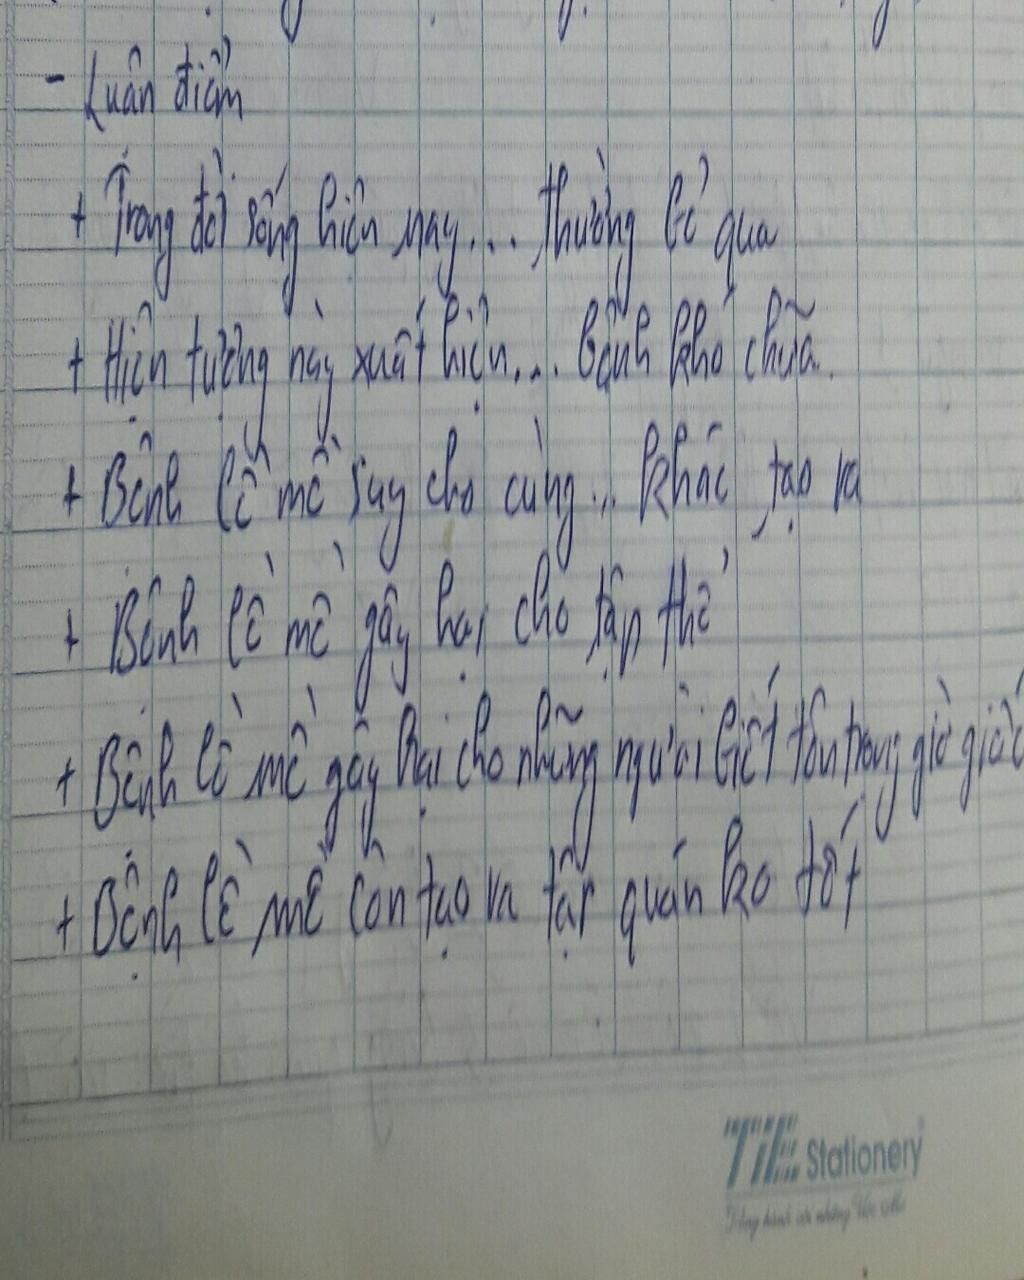 - Luân điểm
+ Trong đời sống hiện nay... thường bỏ qua
+ Hiện tượng này xuất hiện... bệnh khó chữa.
+ Bệnh lề mề suy cho cùng... khác tạo ra
+ Bệnh lề mề gây hại cho tập thể
+ Bệnh lề mề gây hại cho những người biết tôn trọng giờ giấc
+ Bệnh lề mề còn tạo ra tập quán ko tốt
TIE Stationery